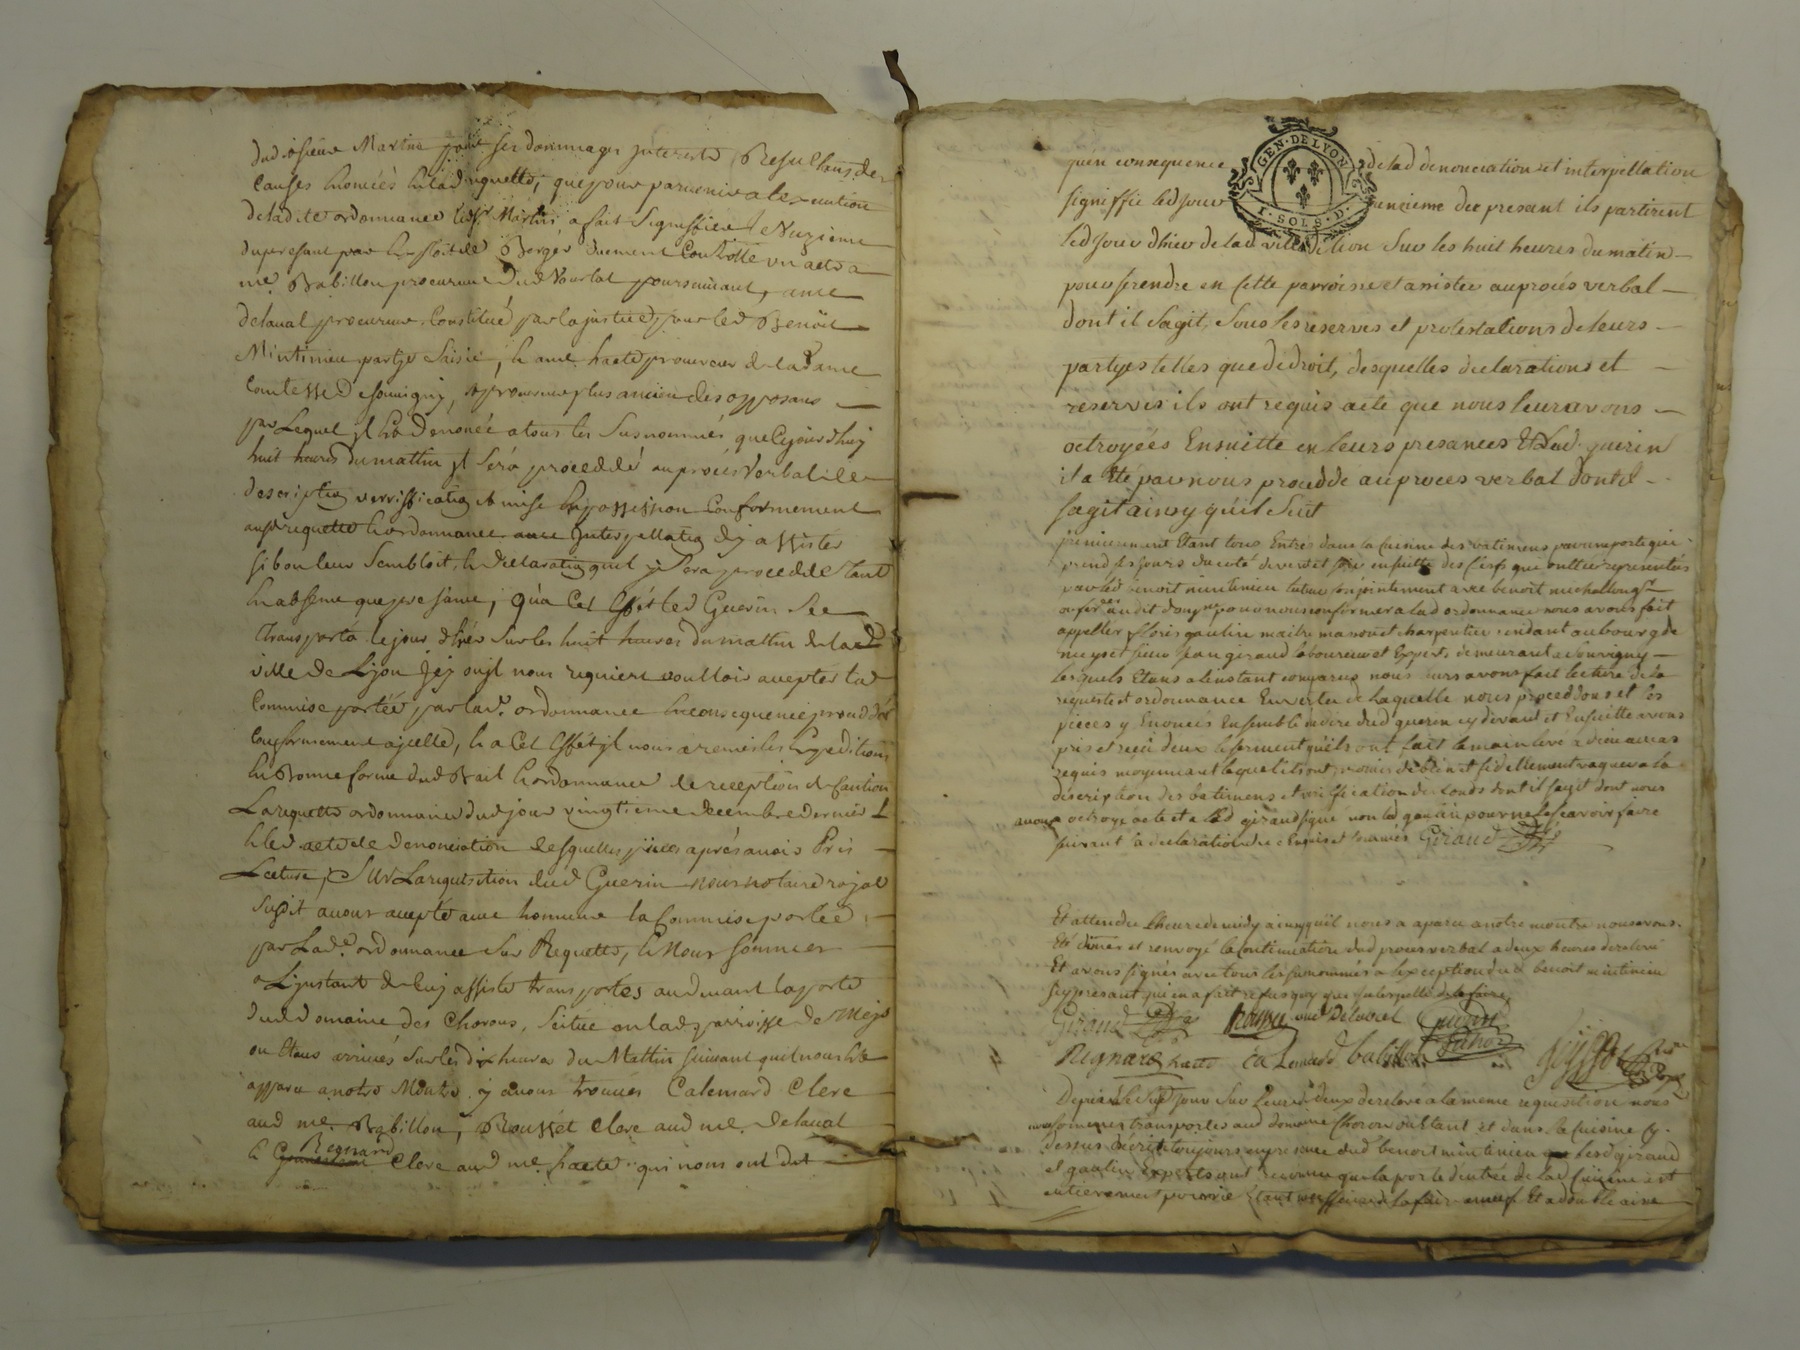 dud sieur Martin pour ses dommages interests Resultans des
causes enoncées en lad requette, que pour parvenir a lexecution
deladite ordonnance led sr. Martin, a fait Signiffier Le Unzieme
dupresant par Exploit de Berger duement Controllé un acte a
me. Babillon procureur Dud Vourlat poursuivant, a me
delaual procureur Constitué par la justice pour led Benoit
Mintinieu partye Saisie, & a me haete procureur de la Dame
Comtesse De Souvigny, & procureur plus ancien des opposans
par Lequel jl ha Denoncé a tous les Susnommés que Cejourdhuy
huit heures du mattin jl Sera proceddé au procés Verbal de
description verriffication et mise en possession Conformement
auxd requette & ordonnance avec Interpellation dy assister
si bon leur Sembloit, & declaration quil y Sera proceddé Tant
En absence que presance, qua Cet Effet led Guerin See
Transporta le jour dhier Sur les huit heures du mattin de lad
ville de Lyon Jcy ou jl nous requiert vouloir accepter lad
Commise portée par lad. ordonnance En consequence procedder
Conformement a jcelle, & a Cet Effet jl nous a remis les Expeditions
En Bonne forme dud Bail & ordonnance de reception de Caution
La requette ordonnance dud jour vingtieme decembre dernier &
& led acte de denonciation desquelles pieces aprés avoir Pris
Lecture, Sur La requisition dud Guerin nous notaire royal
Susdit avons accepté avec honneur la Commise portée
par Lade. ordonnance Sur Requette, & Nous Sommes
a Ljnstant de luy assisté transportés audevant la porte
dud domaine des Chorons, Scitue en lad parroisse de Meys
ou Etans arrivés Sur les dix heures du Mattin suivant quil nous ha
apparu a notre Montre. y avons trouvés Calemard Clerc
aud me. Babillon, Rousset clerc aud me. delaual
& Regnard Clerc aud me. haete qui nous ont dit
quen consequence delad denonciation et interpellation
signiffié led jour unzieme du presant ils partirent
led jour dhier de lad ville de Lion Sur les huit heures du matin
pour se rendre en Cette parroisse et assister au procés verbal
dont il Sagit, Sous les reserves et protestations de leurs
partyes telles que de droit, desquelles declarations et
reserves ils ont requis acte que nous leur avons
octroyées Ensuitte en leurs presances Et dud. guerin
il a Eté par nous procedde au proces verbal dont il
sagit ainsy quil Suit
premierement Etant tous Entrés dans la Cuisine des batimens par une porte qui
prend ses jours du coté de vent et soir ensuitte des clefs que onttés representés
par led benoit mintinieu tuteur conjointement avec benoit michallon
pour nous conformer a lad ordonnance nous avons fait
appeller floris gaulin maitre masson et charpentier residant au bourg de
meys et sieur jean giraud laboureur et Expert demeurant a souvigny
lesquels Etans a linstant comparus nous leurs avons fait lecture de la
requeste et ordonnance En vertu de laquelle nous proceddons et les
pieces y Enoncés Ensemble le dire dud guerin cy devant et Ensuitte avons
pris et reçu deux le serment quils ont fait la main levé a dieu au cas
requis moyennant laquel ils ont promis de bien et fidellement vaquer a la
description des batimens et veriffication des fonds dont il sagit dont nous
avons octroyé acte et a led giraud signé non led gaulin pour ne le scavoir faire
suivant sa declaration de ce Enquis et sommés Giraud
Et attendu Lheure de midy ainsy quil nous a aparu a notre montre nous avons
Eté diner et renvoyé la Continuation dud procés verbal a deux heures de relevé
Et avons signés avec tous les susnommés a lexception dud benoit mintinieu
icy presant qui en a fait refus quoy que interpellé de le faire
Giraud Rousset me Delaval guerin
Regnard haete Calemard babillon
Depuis le Sud. jour Sur Lheure de deux de relevé a la meme requisition nous
nous sommes transportés aud domaine Choron ou Etant et dans la Cuisine cy
dessus décritte toujours en presence dud benoit mintinieu lesd giraud
et gaulin Experts ont reconnu que la porte dentrée de lad Cuisine est
entierement pourrie Etant necessaire de la faire a neuf Et a double aire
GEN · DE LYON
I · SOLS · D ·